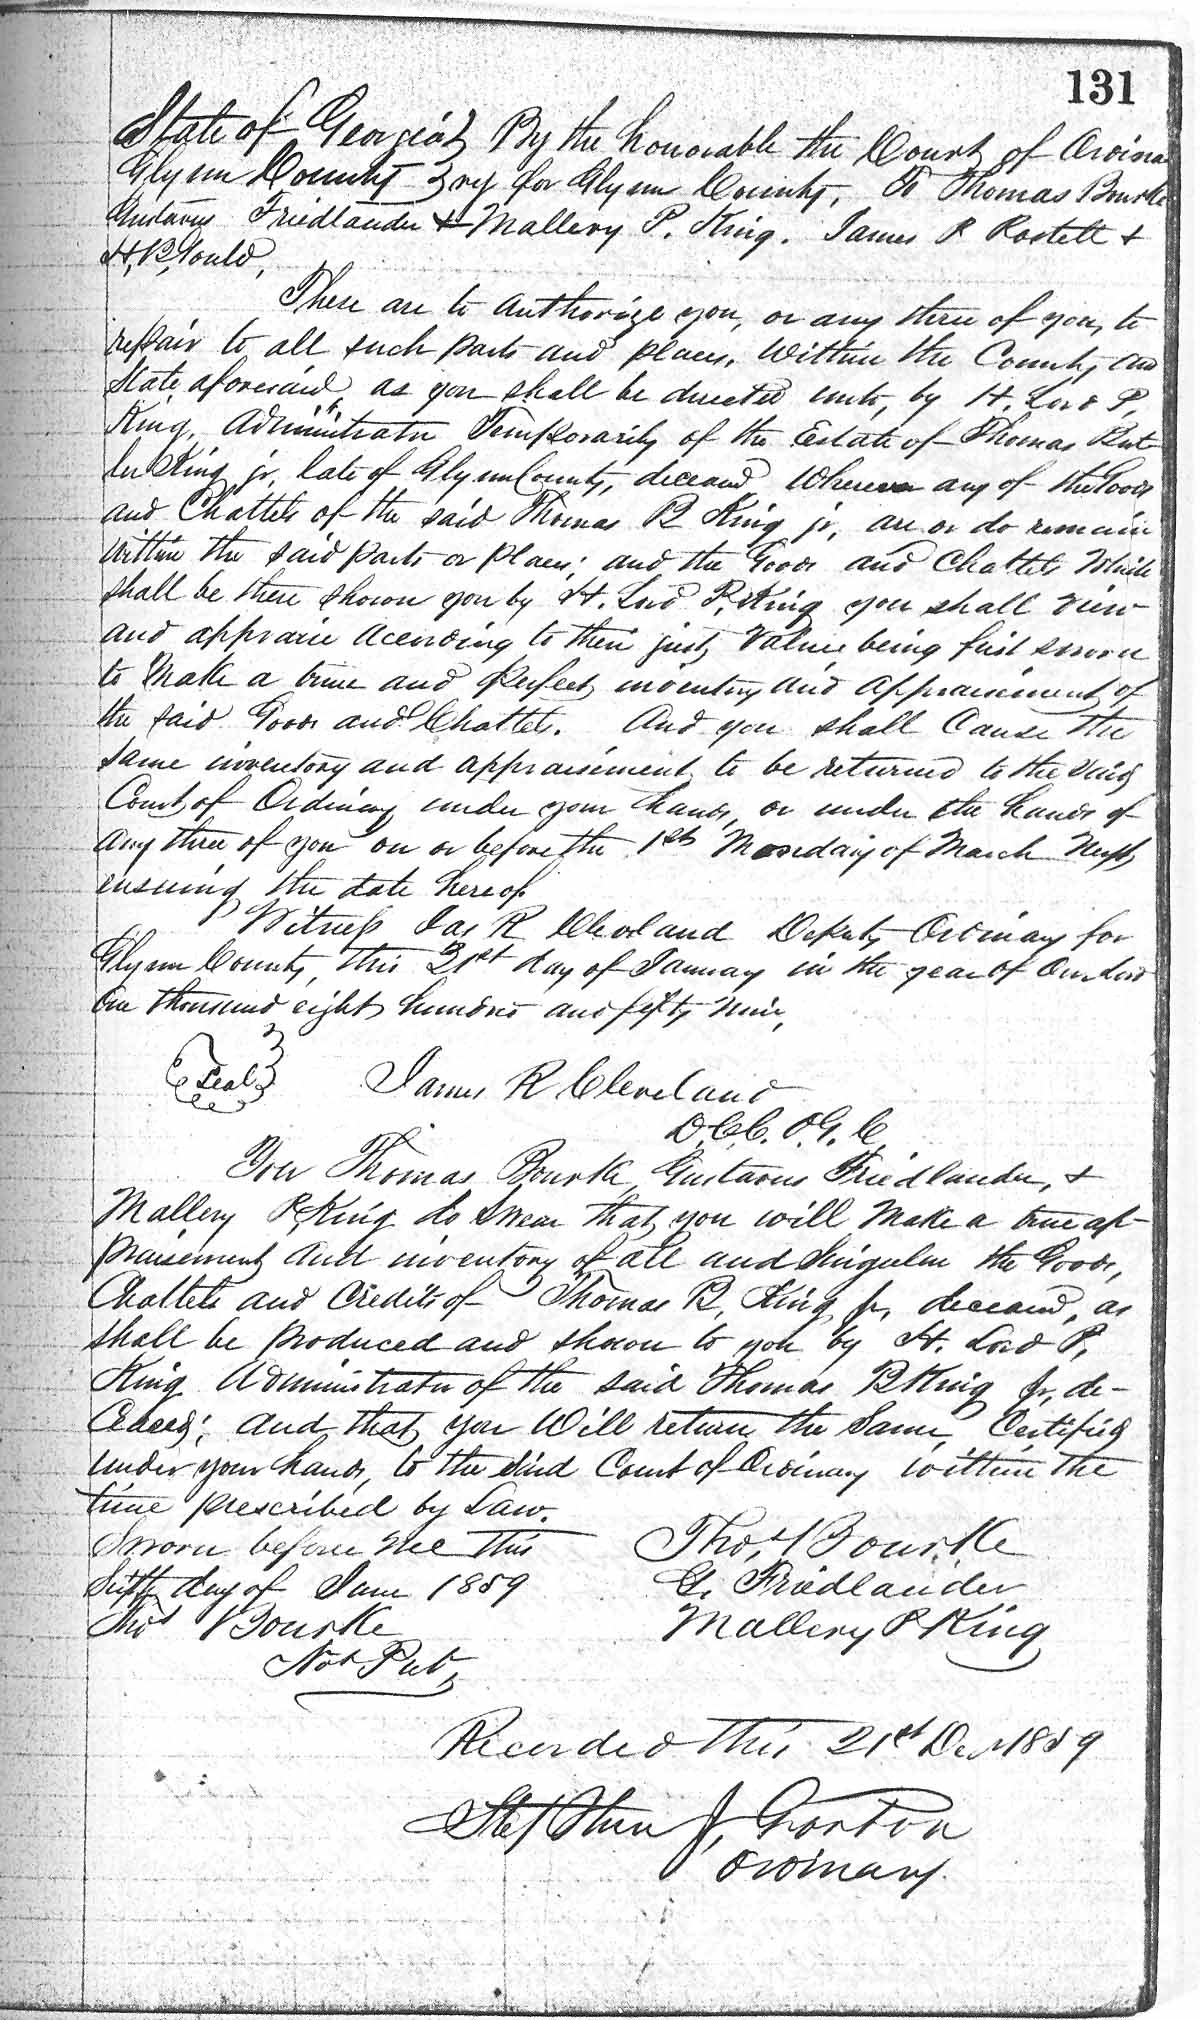 131
State of Georgia } By the Honorable the Court of Ordina
Glynn County } ry for Glynn County. To Thomas Bourke
Gustavus Friedlander & Mallery P. King. James R Rostell &
H. B. Gould,
These are to authorize you, or any three of you, to
repair to all such parts and places, within the County and
State aforesaid as you shall be directed unto, by H. Lord P.
King, Administrator Temporarily of the Estate of Thomas But
ler King jr, late of Glynn County, deceased wherever any of the Goods
and Chattels of the said Thomas B King jr, are or do remain
within the said parts or places; and the Goods and Chattels which
shall be there shown you by H. Lord P. King you shall view
and appraise according to their just value, being first sworn
to make a true and perfect inventory and appraisement of
the said Goods and Chattels. And you shall cause the
same inventory and appraisement to be returned to the said
Court of Ordinary under your hands, or under the hands of
any three of you on or before the 1st Monday of March next
ensuing the date hereof.
Witness Jas R Cleveland Deputy Ordinary for
Glynn County, this 21st day of January in the year of Our Lord
One thousand eight hundred and fifty nine,
Seal James R Cleveland
D.C.C.O.G.C.
You Thomas Bourke, Gustavus Friedlander, &
Mallery P. King do swear that you will make a true ap-
praisement and inventory of all and singular the Goods,
Chattels and Credits of Thomas B. King jr, deceased, as
shall be produced and shown to you by H. Lord P.
King Administrator of the said Thomas B King Jr, de-
ceased; and that you will return the same, Certified
under your hands, to the said Court of Ordinary within the
time prescribed by Law.
Sworn before me this Thos Bourke
day of June 1859 G. Friedlander
Thos Bourke Mallery P King
Not Pub,
Recorded this 21st Dec 1859
Stephen J, Gorton
Ordinary.